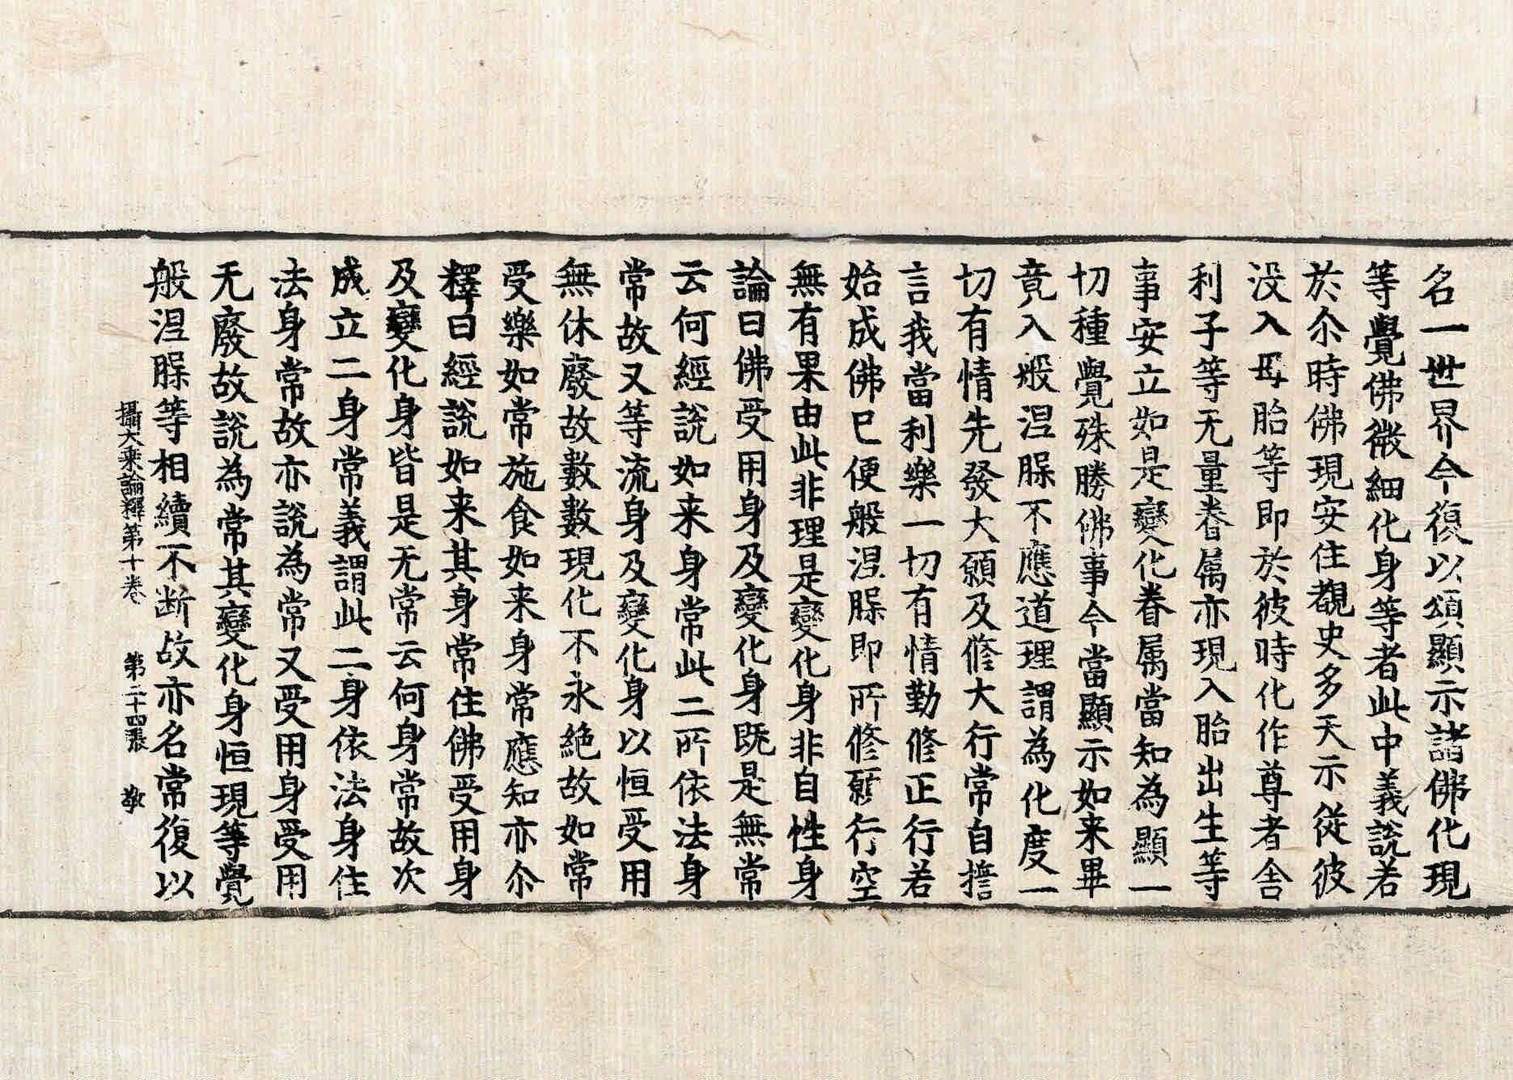 名一世界今復以頌顯示諸佛化現
等覺佛微細化身等者此中義說若
於尒時佛現安住覩史多天示從彼
没入母胎等即於彼時化作尊者舍
利子等无量眷属亦現入胎出生等
事安立如是變化眷属當知為顯一
切種覺殊勝佛事今當顯示如来畢
竟入般涅腂不應道理謂為化度一
切有情先發大願及修大行常自擔
言我當利樂一切有情勤修正行若
始成佛已便般涅腂即所修願行空
無有果由此非理是變化身非自性身
論曰佛受用身及變化身既是無常
云何經說如来身常此二所依法身
常故又等流身及變化身以恒受用
無休廢故數數現化不永絶故如常
受樂如常施食如来身常應知亦尒
釋曰經說如来其身常住佛受用身
及變化身皆是无常云何身常故次
成立二身常義謂此二身依法身住
法身常故亦說為常又受用身受用
无廢故說為常其變化身恒現等覺
般涅腂等相續不断故亦名常復以
攝大乘論釋第十卷 第二十四張 敬